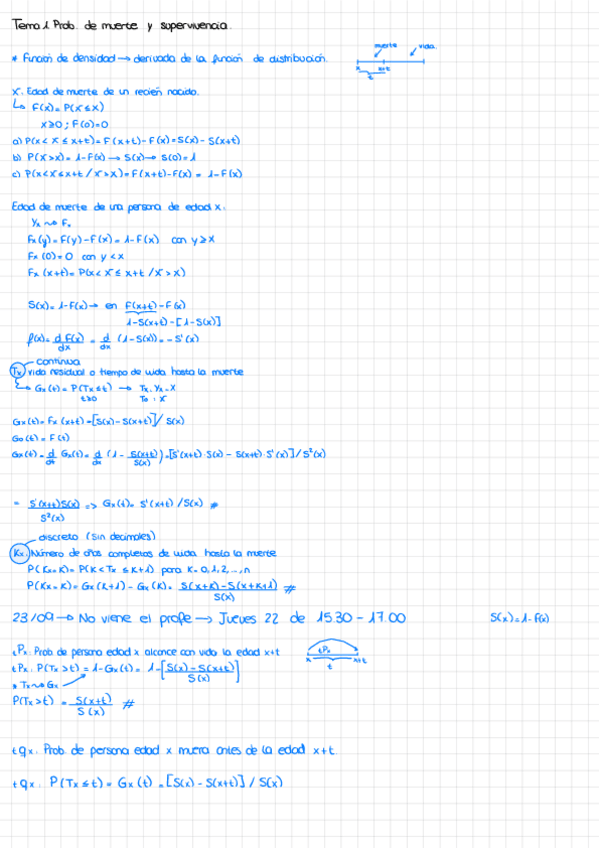 Tema 1. Prob. de muerte y supervivencia.
muerte vida.
* Función de densidad → derivada de la función de distribución.
x x+t
t
X: Edad de muerte de un recién nacido.
↳ F(x) = P(X ≤ x)
x≥0 ; F(0)=0
a) P(x < X ≤ x+t) = F(x+t) - F(x) = S(x) - S(x+t)
b) P(X > x) = 1 - F(x) → S(x) → S(0) = 1
c) P(x < X ≤ x+t / X > x) = F(x+t) - F(x) = 1 - F(x)
Edad de muerte de una persona de edad x:
Yx ~> Fx
Fx (y) = F(y) - F(x) = 1 - F(x) con y ≥ x
Fx (0) = 0 con y < x
Fx (x+t) = P(x < X ≤ x+t / X > x)
S(x) = 1 - F(x) → en F(x+t) - F(x)
1 - S(x+t) - [1 - S(x)]
f(x) = d F(x) / dx = d / dx (1 - S(x)) = - S'(x)
continua
Tx: vida residual o tiempo de vida hasta la muerte
↳ Gx (t) = P(Tx ≤ t) → Tx: Yx - X
t≥0 To : X
Gx (t) = Fx (x+t) = [S(x) - S(x+t)] / S(x)
Go (t) = F(t)
Gx (t) = d / dt Gx(t) = d / dx (1 - S(x+t) / S(x)) = [S'(x+t) · S(x) - S(x+t) · S'(x)] / S²(x)
= S'(x+t) S(x) / S²(x) => Gx (t) = S'(x+t) / S(x) #
discreta (sin decimales)
Kx: Número de años completos de vida hasta la muerte
P(Kx = K) = P(K < Tx ≤ K+1) para K = 0, 1, 2, ..., n
P(Kx = K) = Gx (K+1) - Gx (K) = S(x+K) - S(x+K+1) / S(x) #
23/09 → No viene el profe → Jueves 22 de 15.30 - 17.00 S(x) = 1 - F(x)
tPx: Prob de persona edad x alcance con vida la edad x+t
tPx
x x+t
t
tPx: P(Tx > t) = 1 - Gx (t) = 1 - [S(x) - S(x+t) / S(x)]
* Tx ~> Gx
P(Tx > t) = S(x+t) / S(x) #
tqx: Prob. de persona edad x muera antes de la edad x+t.
tqx: P(Tx ≤ t) = Gx (t) = [S(x) - S(x+t)] / S(x)